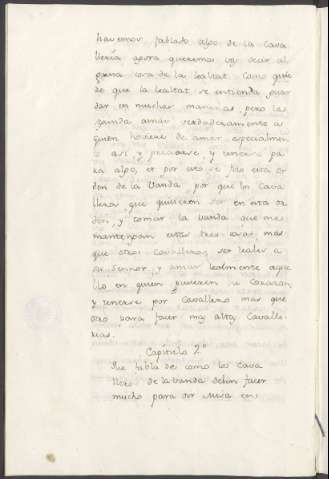 havemos fablado algo de la Cava
lleria agora queremos vos decir al
guna cosa de la lealtat. Como quie
ra que la lealtat se entienda guar
dar en muchas maneras, pero la se
gunda amar verdaderamente a
quien hoviere de amar especialmen
te así y preciarse, y tenerse pa
ra algo, et por esto se fizo esta or
den de la Vanda, por que los Cava
lleros que quisieren ser en esta or
den, y tomar la vanda que
mantengan estas tres cosas mas
que otros cavalleros, ser leales a
su Señor, y amar lealmente aque
lla en quien pusieren su Corazon,
y tenerse por Cavalleros mas que
otro para facer mas altas Cavalle
rias.
Capitulo 2º
Que habla de como los Cava
lleros de la vanda deben facer
mucho para oir Missa en